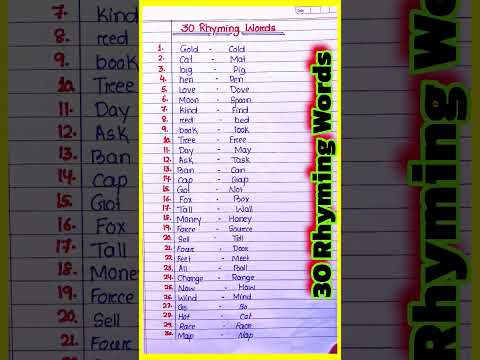 7. Kind
8. red
9. book
10. Tree
11. Day
12. Ask
13. Ban
14. Cap
15. Got
16. Fox
17. Tall
18. Money
19. Force
20. Sell
21. Four
30 Rhyming Words
1. Gold - Cold
2. Cat - Mat
3. big - Pig
4. hen - Pen
5. Love - Dove
6. Moon - Spoon
7. Kind - Find
8. red - bed
9. book - look
10. Tree - Free
11. Day - May
12. Ask - Task
13. Ban - Can
14. Cap - Gap
15. Got - Not
16. Fox - Box
17. Tall - Wall
18. Money - Honey
19. Force - Source
20. Sell - Tell
21. Four - Door
22. Feet - Meet
23. All - Ball
24. Change - Range
25. Now - How
26. Wind - Mind
27. - So
28. Hot -
29. Race - Face
30. Map - Nap
30 Rhyming Words
Rhyming Wo